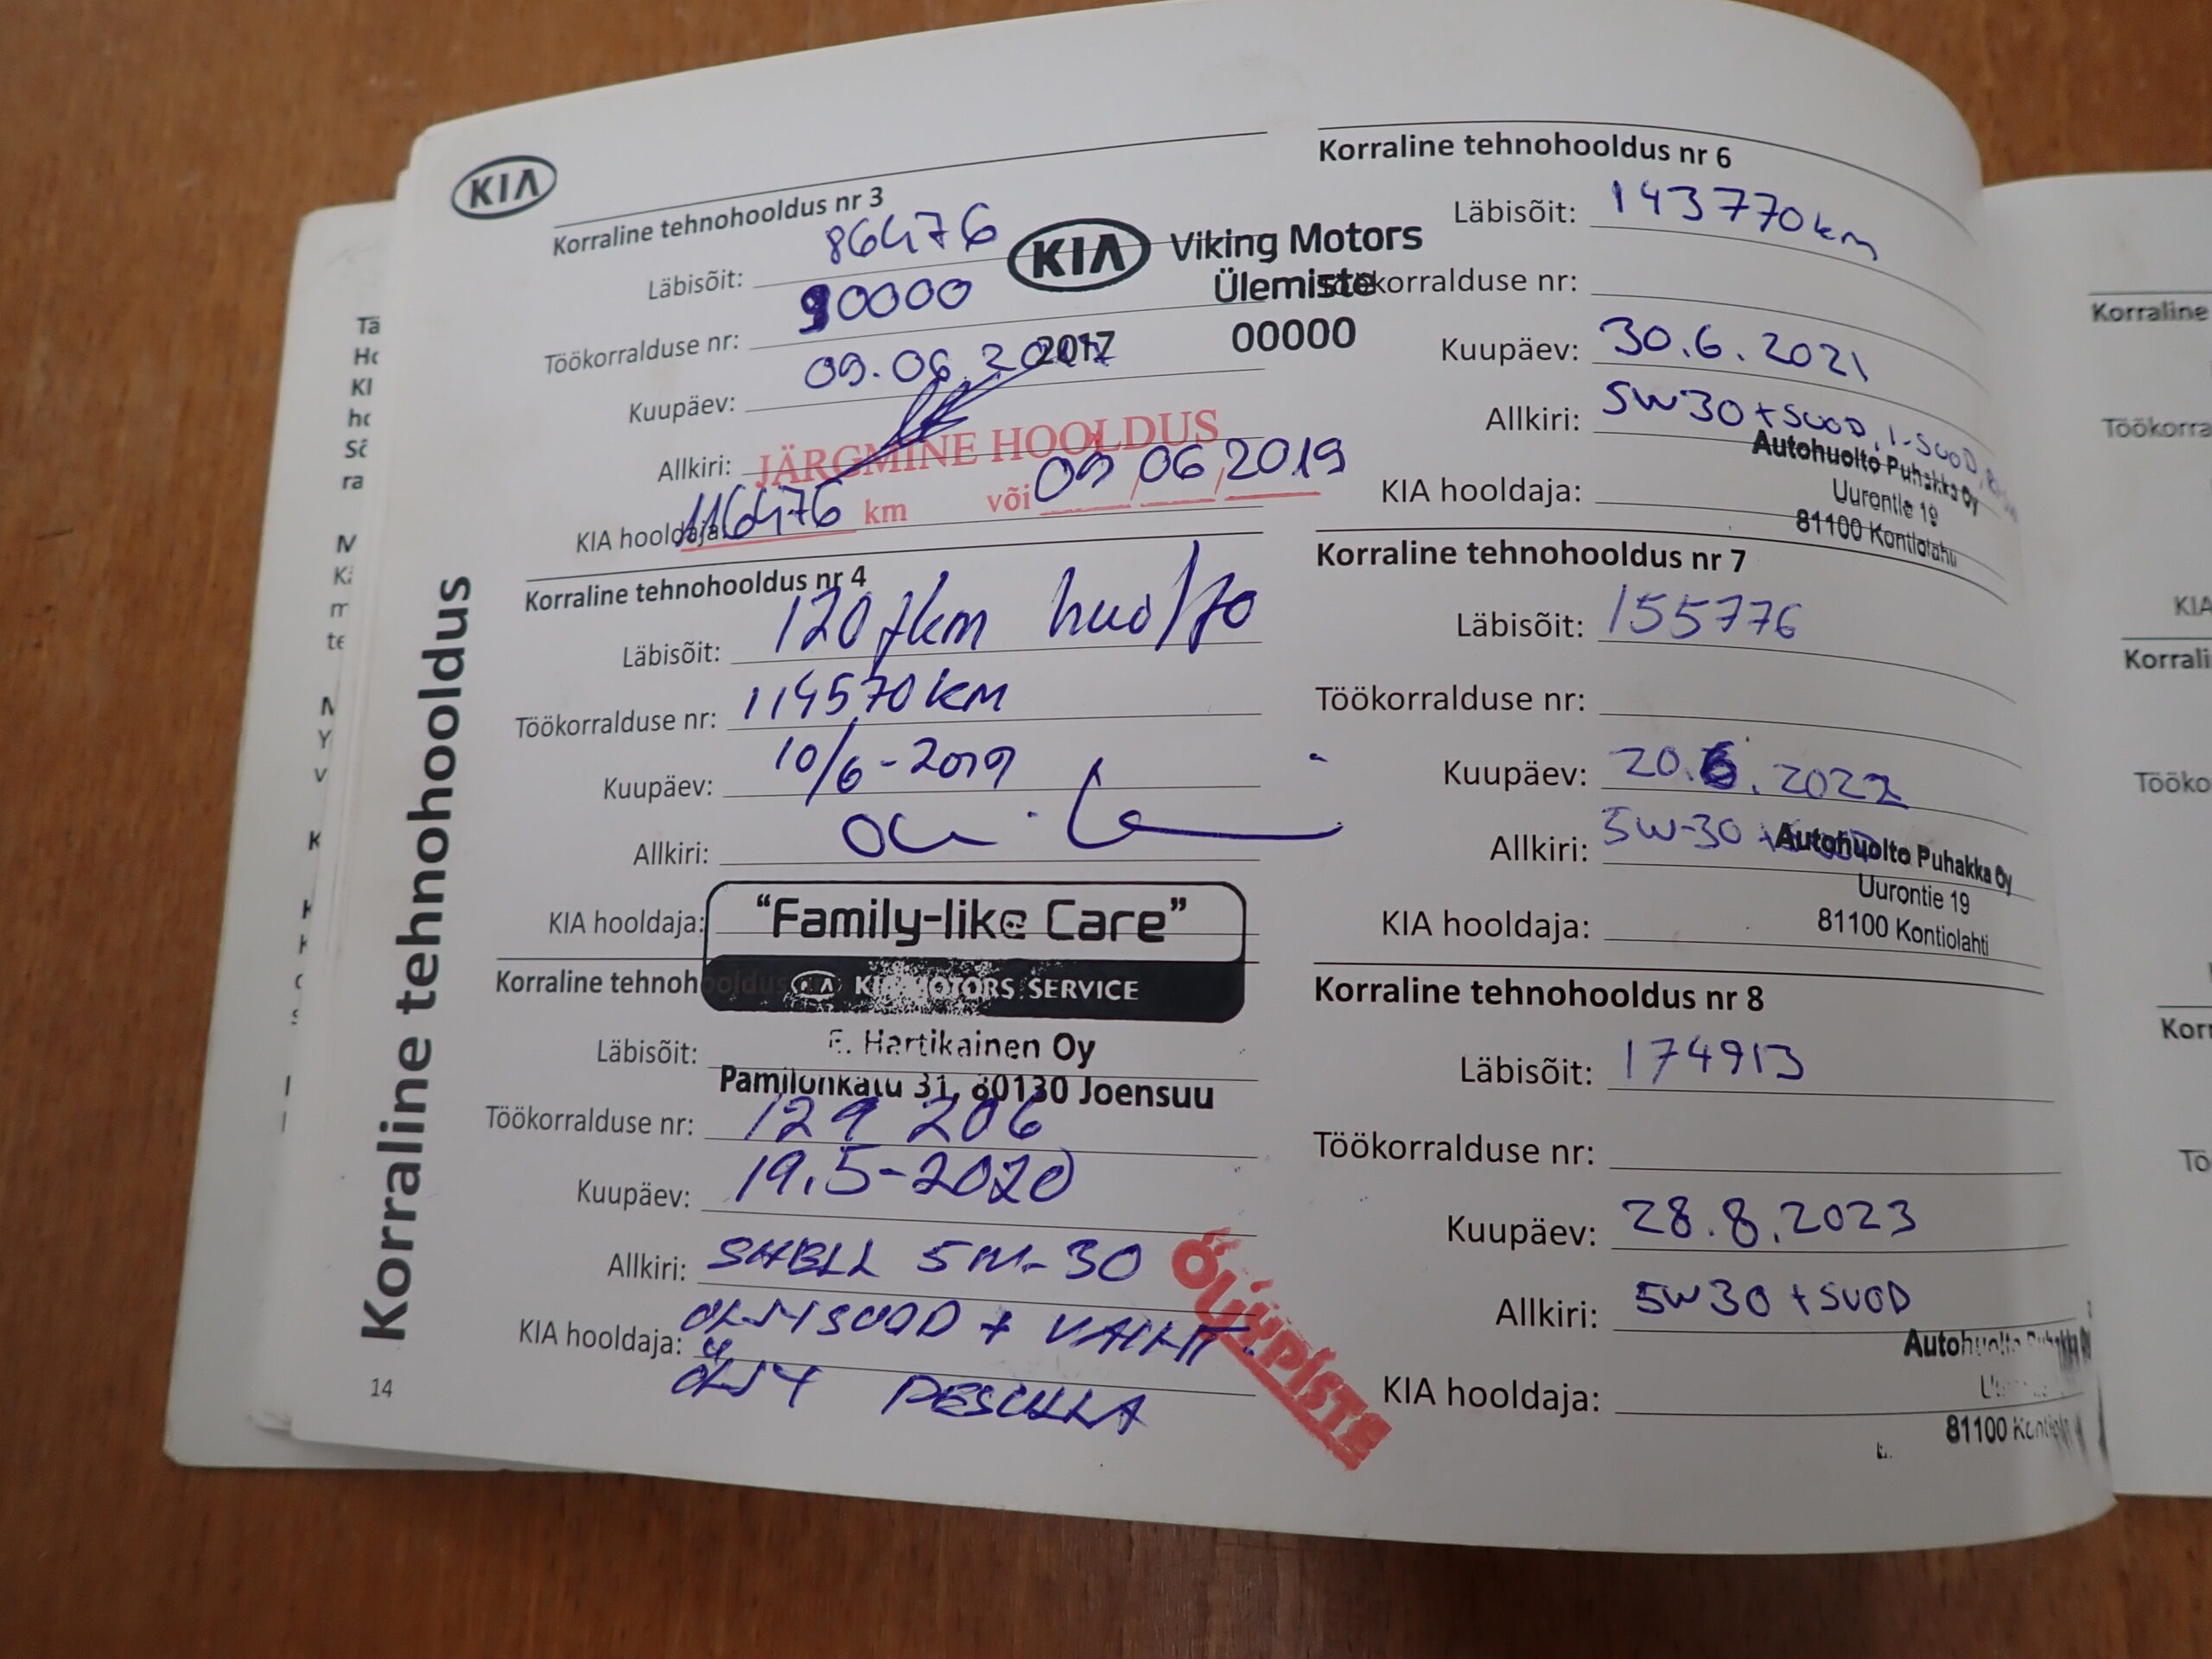 KIA
Korraline tehnohooldus
Korraline tehnohooldus nr 3
Läbisõit: 86476
Töökorralduse nr: 90000
Kuupäev: 09.06.2017
Allkiri:
KIA hooldaja:
KIA Viking Motors
Ülemiste
00000
2017
JÄRGMINE HOOLDUS
116476 km või 09/06/2019
Korraline tehnohooldus nr 4
Läbisõit: 120 tkm huolto
Töökorralduse nr: 114570 km
Kuupäev: 10/6-2019
Allkiri:
KIA hooldaja:
"Family-like Care"
KIA MOTORS SERVICE
E. Hartikainen Oy
Pamilonkatu 31, 80130 Joensuu
Korraline tehnohooldus
Läbisõit:
Töökorralduse nr: 129 206
Kuupäev: 19.5-2020
Allkiri: SHELL 5W-30
KIA hooldaja: ÖLJYSUOD +
ÖLJY
ÖLJYPISTE
14
Korraline tehnohooldus nr 6
Läbisõit: 143770 km
Töökorralduse nr:
Kuupäev: 30.6.2021
Allkiri: 5W30 + SUOD, I-SUOD,
KIA hooldaja:
Autohuolto Puhakka Oy
Uurontie 19
81100 Kontiolahti
Korraline tehnohooldus nr 7
Läbisõit: 155776
Töökorralduse nr:
Kuupäev: 20.6.2022
Allkiri: 5W-30 +
KIA hooldaja:
Autohuolto Puhakka Oy
Uurontie 19
81100 Kontiolahti
Korraline tehnohooldus nr 8
Läbisõit: 174913
Töökorralduse nr:
Kuupäev: 28.8.2023
Allkiri: 5W30 + SUOD
KIA hooldaja:
Autohuolto Puhakka Oy
81100
Korraline